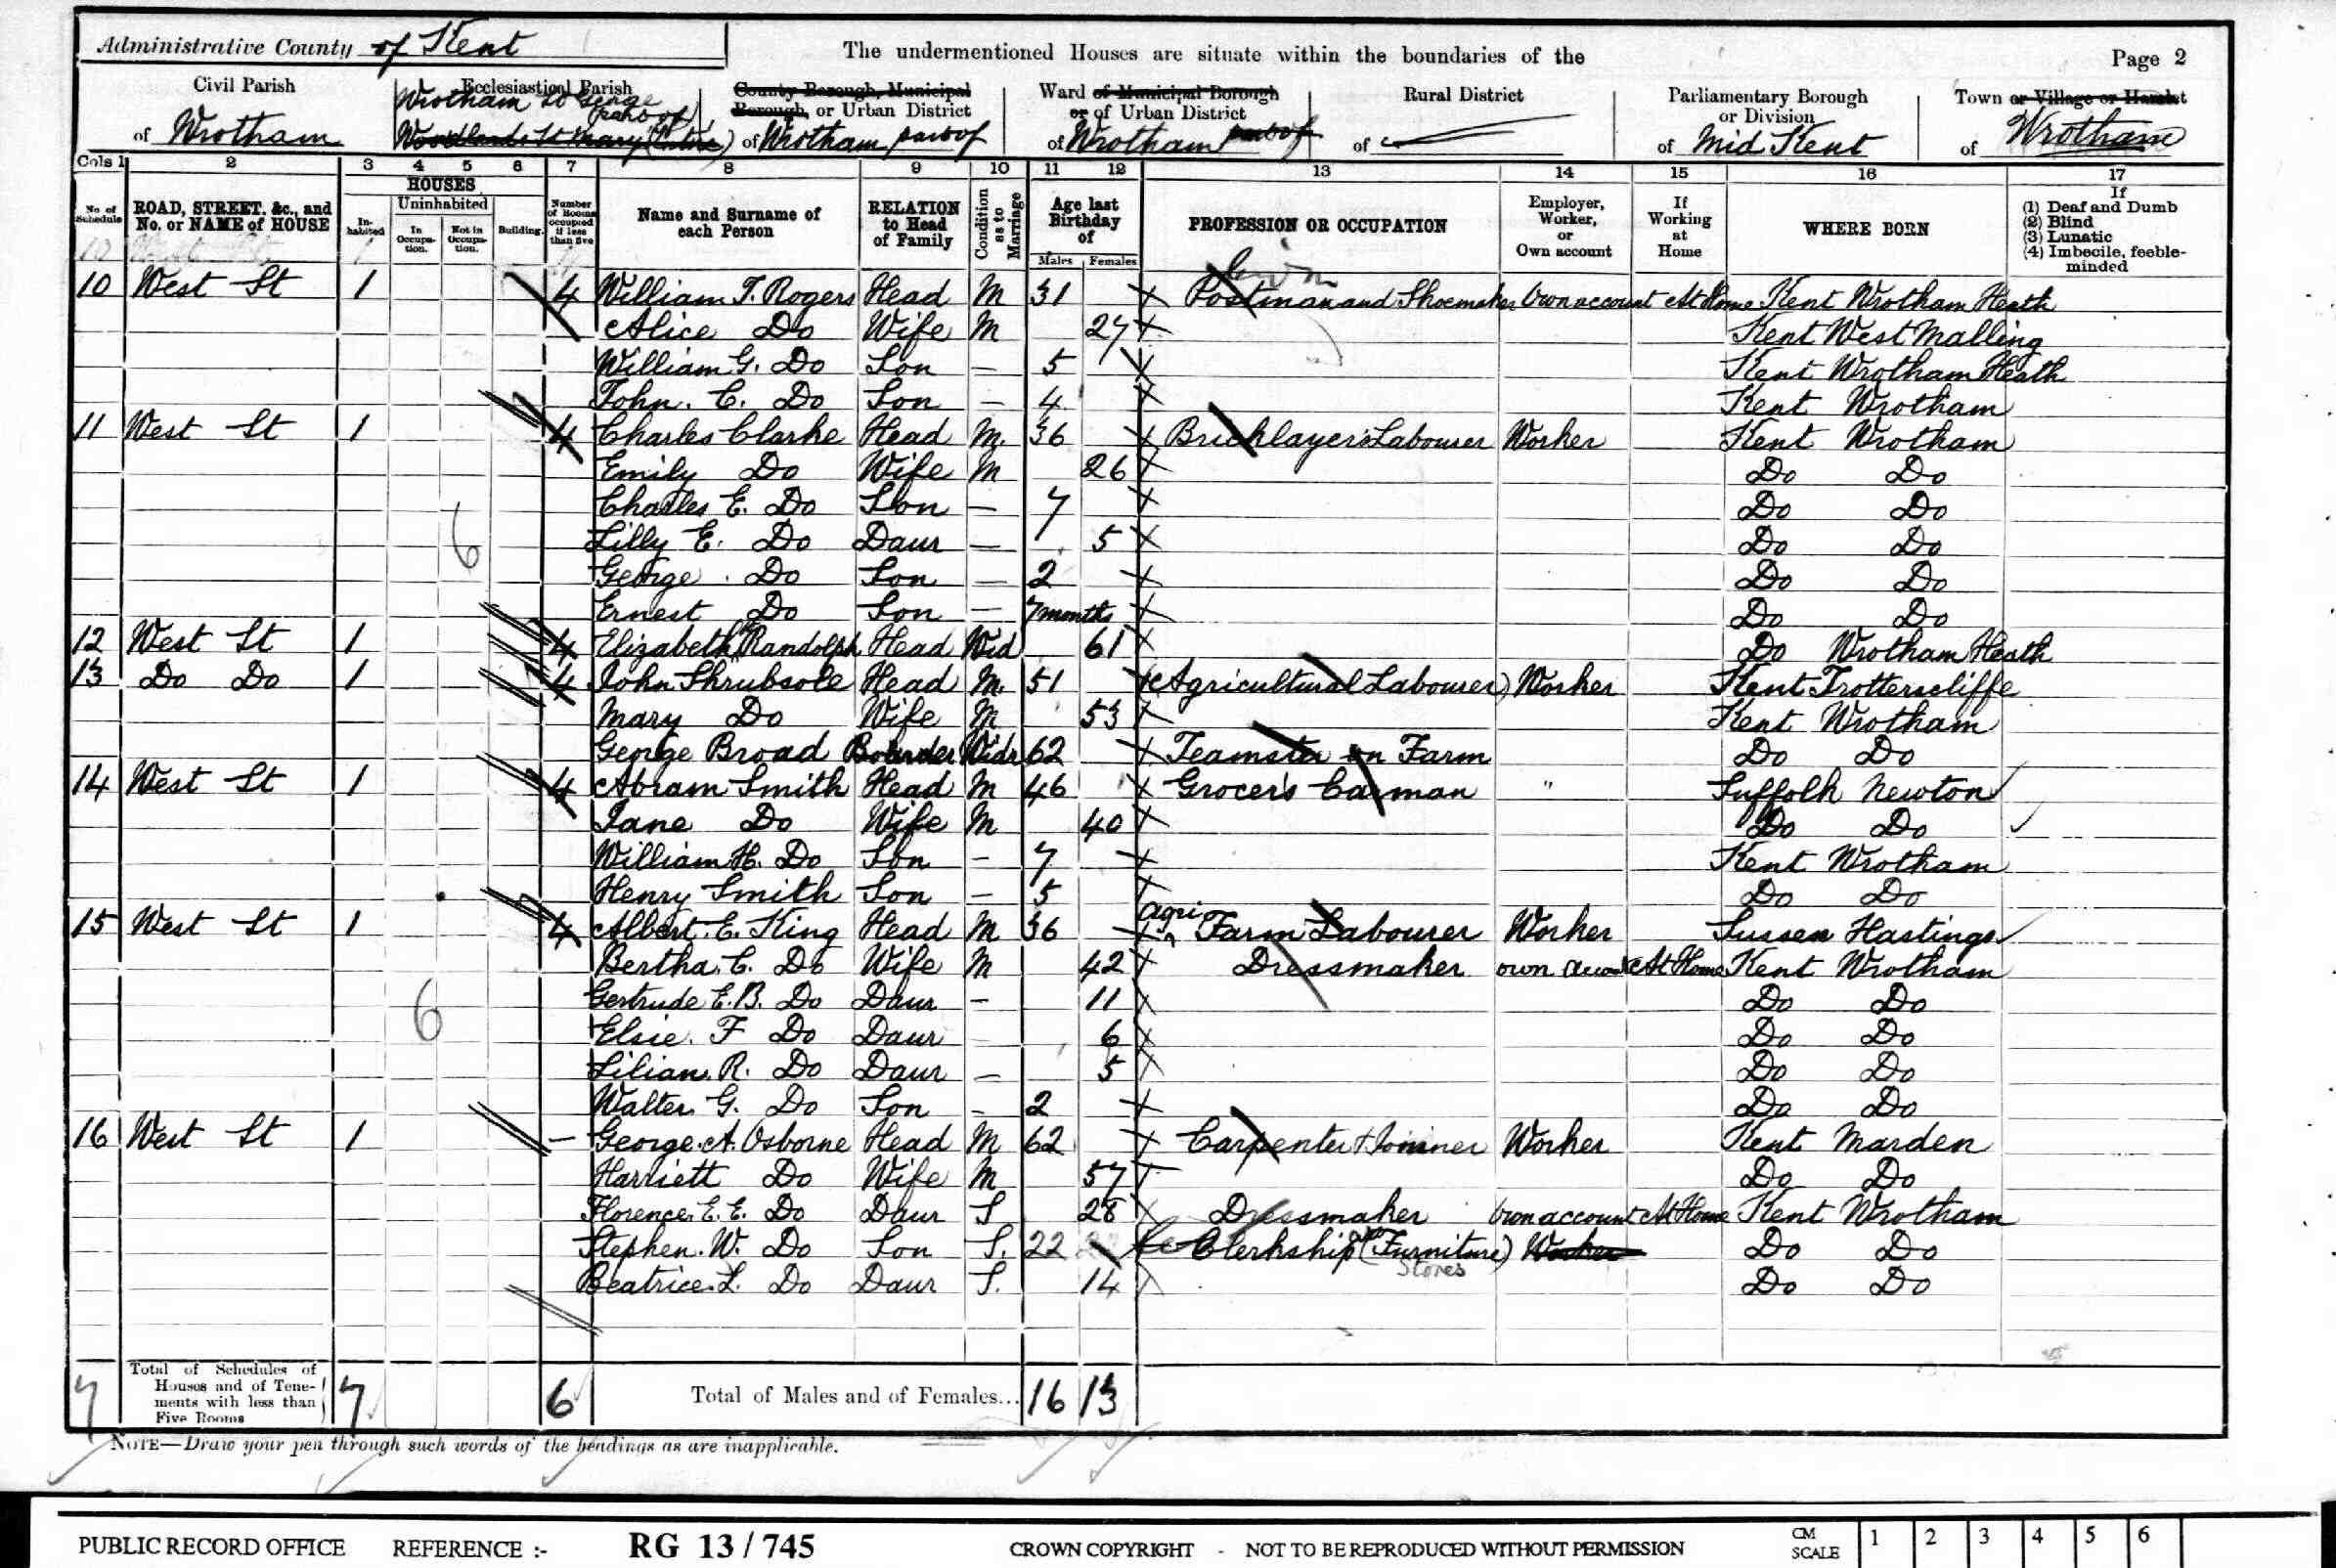 Administrative County of Kent
The undermentioned Houses are situate within the boundaries of the
Page 2
Civil Parish of Wrotham
Ecclesiastical Parish Wrotham St George (part of) Woodlands St Mary (Entire)
County Borough, Municipal Borough, or Urban District of Wrotham part of
Ward of Municipal Borough or of Urban District of Wrotham part of
Rural District of
Parliamentary Borough or Division of Mid Kent
Town or Village or Hamlet of Wrotham
Cols 1 2 3 4 5 6 7 8 9 10 11 12 13 14 15 16 17
No of Schedule
ROAD, STREET, &c., and No. or NAME of HOUSE
HOUSES
Inhabited
Uninhabited
In Occupation.
Not in Occupation.
Building.
Number of Rooms occupied if less than five
Name and Surname of each Person
RELATION to Head of Family
Condition as to Marriage
Age last Birthday of
Males Females
PROFESSION OR OCCUPATION
Employer, Worker, or Own account
If Working at Home
WHERE BORN
If
(1) Deaf and Dumb
(2) Blind
(3) Lunatic
(4) Imbecile, feeble-minded
10 West St 1 4 William T. Rogers Head M 31 Postman and Shoemaker Own account At Home Kent Wrotham Heath
Alice Do Wife M 27 Kent West Malling
William G. Do Son — 5 Kent Wrotham Heath
John. C. Do Son — 4 Kent Wrotham
11 West St 1 4 Charles Clarke Head M. 36 Bricklayer's Labourer Worker Kent Wrotham
Emily Do Wife M 26 Do Do
Charles E. Do Son — 7 Do Do
Lilly E. Do Daur — 5 Do Do
George Do Son — 2 Do Do
Ernest Do Son — 7 months Do Do
12 West St 1 4 Elizabeth Randolph Head Wid 61 Do Wrotham Heath
13 Do Do 1 4 John Shrubsole Head M. 51 (Agricultural Labourer) Worker Kent Trotterscliffe
Mary Do Wife M 53 Kent Wrotham
George Broad Boarder Widr 62 Teamster on Farm Do Do
14 West St 1 4 Abram Smith Head M 46 Grocer's Carman " Suffolk Newton
Jane Do Wife M 40 Do Do
William H. Do Son - 7 Kent Wrotham
Henry Smith Son - 5 Do Do
15 West St 1 4 Albert. E. King Head M 36 agri Farm Labourer Worker Sussex Hastings
Bertha. C. Do Wife M 42 Dressmaker own account At Home Kent Wrotham
Gertrude E. B. Do Daur - 11 Do Do
6 Elsie. F Do Daur 6 Do Do
Lilian. R. Do Daur — 5 Do Do
Walter. G. Do Son - 2 Do Do
16 West St 1 — George. A. Osborne Head M 62 Carpenter & Joiner Worker Kent Marden
Harriett Do Wife M 57 Do Do
Florence. E. E. Do Daur S 28 Dressmaker Own account At Home Kent Wrotham
Stephen. W. Do Son S. 22 Clerkship (Furniture) Stores Worker Do Do
Beatrice. L. Do Daur S. 14 Do Do
7 Total of Schedules of Houses and of Tenements with less than Five Rooms 7 6 Total of Males and of Females... 16 13
NOTE—Draw your pen through such words of the headings as are inapplicable.
PUBLIC RECORD OFFICE REFERENCE :- RG 13/745 CROWN COPYRIGHT - NOT TO BE REPRODUCED WITHOUT PERMISSION CM SCALE 1 2 3 4 5 6